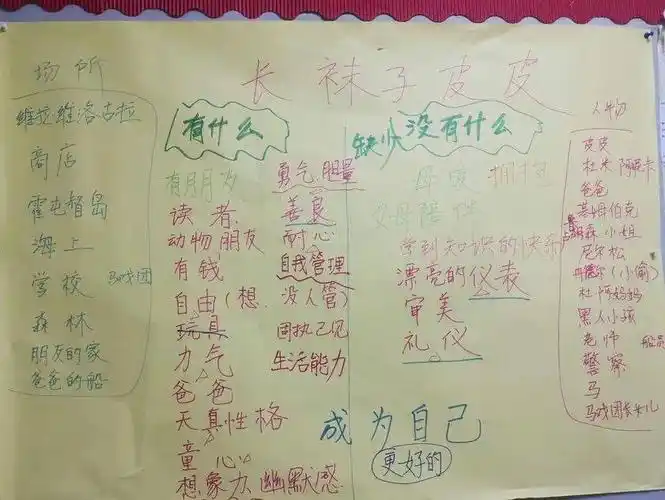 长袜子皮皮
场所
维拉维洛古拉
商店
霍屯督岛
海上
学校 马戏团
森林
朋友的家
爸爸的船
有什么
有朋友
读者
动物朋友
有钱
自由(想,没人管)
玩具
力气
爸爸
天真性格
童心
想象力 幽默感
勇气、胆量
善良
耐心
自我管理
固执己见
生活能力
缺少 没有什么
母皮拥抱
父母陪伴
学到知识的快乐
漂亮的仪表
审美
礼仪
成为自己
更好的
人物
皮皮
杜米 阿妮卡
爸爸
小姐
尼尔松
(小偷)
杜阿妈妈
黑人小孩
老师 船员
警察
马
马戏团长女儿